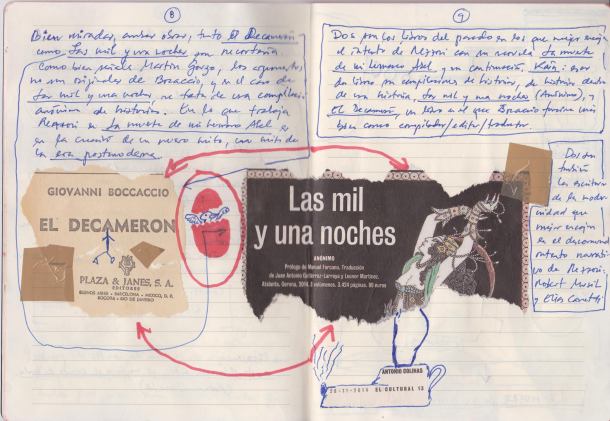 8
Bien miradas, ambas obras, tanto El Decamerón
como Las mil y una noches son recortería.
Como bien señala Martín Garzo, los argumentos
no son originales de Boccaccio, y en el caso de
Las mil y una noches, se trata de una compilación
anónima de historias. En lo que trabaja
Rezzori en La muerte de mi hermano Abel es
en la creación de un nuevo mito, un mito de
la era postmoderna.
GIOVANNI BOCCACCIO
EL DECAMERON
PLAZA & JANES, S. A.
EDITORES
BUENOS AIRES - BARCELONA - MEXICO, D. F.
BOGOTA - RIO DE JANEIRO
9
Dos son los libros del pasado en los que mejor encaja
el intento de Rezzori con su novela La muerte
de mi hermano Abel, y su continuación, Kaín: esos
dos libros son compilaciones de historias, de historias dentro
de una historia, Las mil y una noches (Anónimo), y
El Decamerón, un libro en el que Boccaccio funciona más
bien como compilador/editor/traductor.
Las mil
y una noches
ANÓNIMO
Prólogo de Manuel Forcano. Traducción
de Juan Antonio Gutiérrez-Larraya y Leonor Martínez.
Atalanta. Gerona, 2014. 3 volúmenes. 3.424 páginas. 98 euros
Dos son
también
los escritores
de la moder
nidad que
mejor encajan
en el descomunal
intento narrati
vo de Rezzori:
Robert Musil
y Elias Canetti
ANTONIO COLINAS
28-11-2014 EL CULTURAL 13